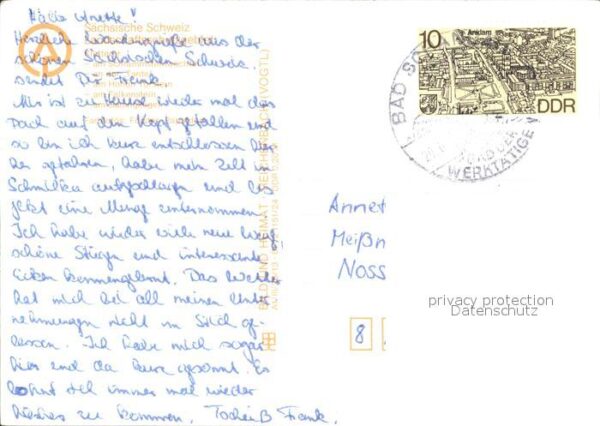 Hallo Annett!
Herzliche Wandergrüße aus der
schönen Sächsischen Schweiz
sendet Dir Frank.
Mir ist zu Hause wieder mal das
Dach auf den Kopf gefallen und
so bin ich kurz entschlossen hier
her gefahren, habe mein Zelt in
Schmilka aufgeschlagen und bis
jetzt eine Menge unternommen.
Ich habe wieder viele neue Wege
schöne Stiegen und interessante
Ecken kennengelernt. Das Wetter
hat mich bei all meinen Unter-
nehmungen nicht im Stich ge-
lassen. Ich habe mich sogar
hier und da kurz gesonnt. Es
lohnt sich immer mal wieder
hierher zu kommen. Tschüß Frank.
Sächsische Schweiz
BILD UND HEIMAT REICHENBACH (VOGTL)
10
Anklam
DDR
BAD SC
BAD DER
WERKTÄTIGEN
Annet
Meißn
Noss
8
privacy protection
Datenschutz